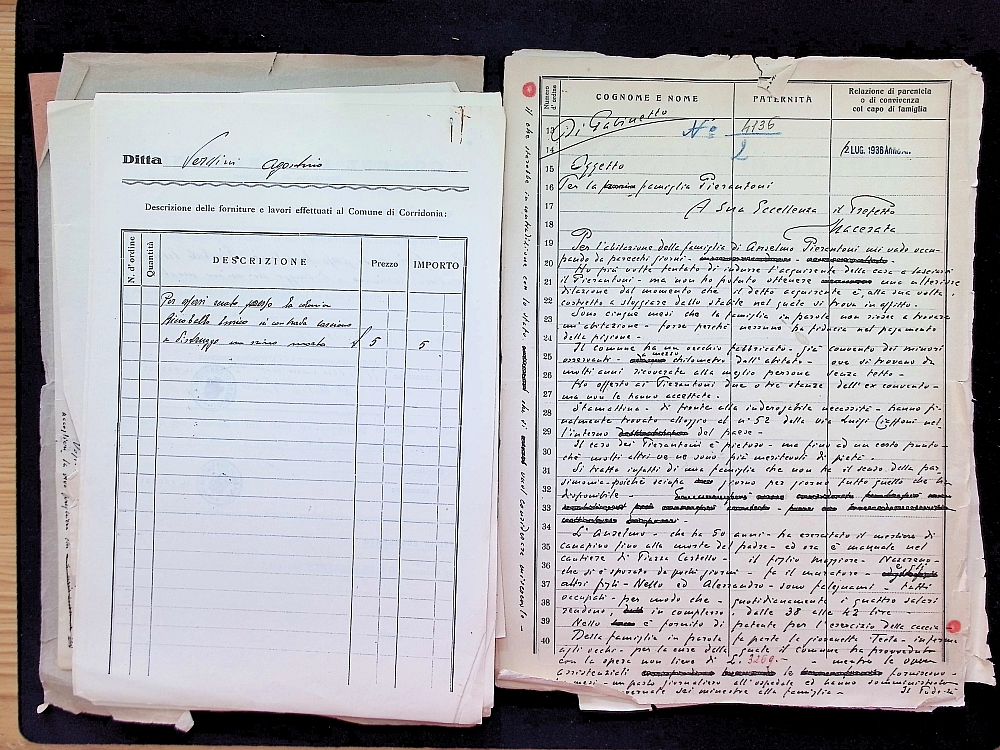 Ditta Verdini Agostino
Descrizione delle forniture e lavori effettuati al Comune di Corridonia:
N. d'ordine
Quantità
DESCRIZIONE
Prezzo
IMPORTO
Per essersi recato presso la colonia
in contrada
e distrutto un nido £ 5 5
il che starebbe in contradizione con lo stato che si vuol considerare miserando -
Numero d'ordine
COGNOME E NOME
PATERNITÀ
Relazione di parentela
o di convivenza
col capo di famiglia
13 Di Gabinetto
No 4136
2
14
2 LUG. 1936
15 Oggetto
16 Per la famiglia Pierantoni
17 A Sua Eccellenza il Prefetto
18 Macerata
19 Per l'abitazione della famiglia di Anselmo Pierantoni mi vado occu-
20 pando da parecchi giorni -
Ho più volte tentato di indurre l'acquirente della casa a lasciarvi
21 il Pierantoni - ma non ho potuto ottenere una ulteriore
dilazione dal momento che il detto acquirente è, alla sua volta
22 costretto a sloggiare dallo stabile nel quale si trova in affitto.
23 Sono cinque mesi che la famiglia in parola non riesce a trovare
un'abitazione - forse perché nessuno ha fiducia nel pagamento
24 della pigione -
Il Comune ha un vecchio fabbricato - già convento dei minori
25 osservanti - a mezzo chilometro dall'abitato - ove si trovano da
26 molti anni ricoverate alla meglio persone senza tetto -
Ho offerto ai Pierantoni due o tre stanze dell'ex convento -
27 ma non le hanno accettate.
28 Stamattina - di fronte alla inderogabile necessità - hanno fi-
nalmente trovato alloggio al n° 52 della via Luigi Ciaffoni nel-
29 l'interno del paese -
30 Il caso dei Pierantoni è pietoso - ma fino ad un certo punto -
ché molti altri ve ne sono più meritevoli di pietà.
31 Si tratta infatti di una famiglia che non ha il senso della par-
simonia - poiché sciupa giorno per giorno tutto quello che ha
32 disponibile -
33
34 L'Anselmo - che ha 50 anni - ha esercitato il mestiere di
35 canapino fino alla morte del padre - ed ora è manuale nel
cantiere di Piazza Castello - il figlio maggiore - Nazzareno -
36 che si è sposato da pochi giorni - fa il muratore - e gli
37 altri figli - Nello ed Alessandro - sono falegnami - tutti
occupati - per modo che - quotidianamente i quattro salari
38 rendono, in complesso, dalle 38 alle 42 lire -
39 Nello è fornito di patente per l'esercizio della caccia -
40 Della famiglia in parola fa parte la giovanetta Tecla - inferma
agli occhi - per la cura della quale il Comune ha provveduto
con la spesa non lieve di L. 3269.- - mentre le opere
assistenziali forniscono -
mesi - un pasto giornaliero all'ospedale ed hanno somministrato
sei minestre alla famiglia - Il Podestà